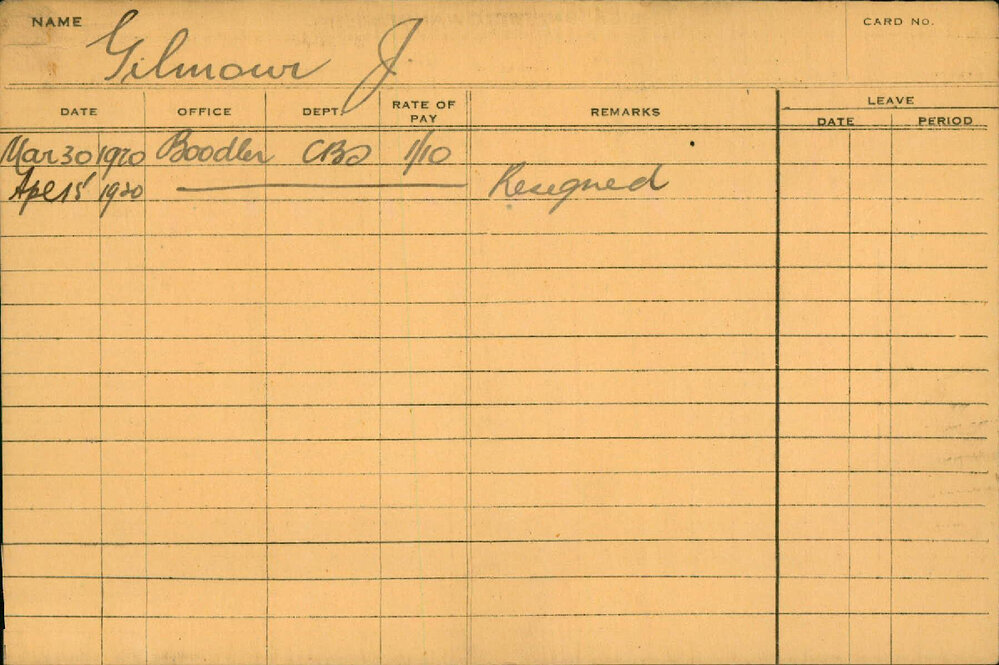 NAME Gilmour J. CARD No.
DATE OFFICE DEPT. RATE OF PAY REMARKS LEAVE
DATE PERIOD
Mar 30 1920 Boodler CBD 1/10
Apl 15 1920 Resigned